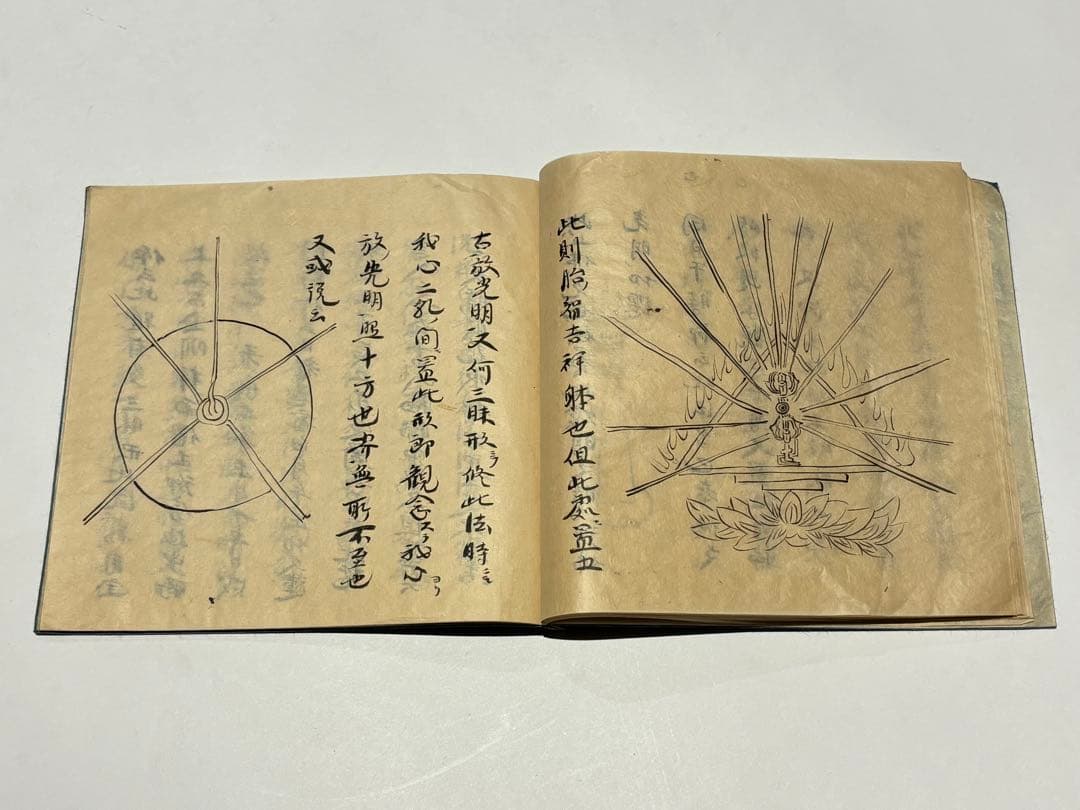 此則胎蔵吉祥躰也但此處置五
古放光明又何三昧形ヲ修此法時ニ
我心二孔ノ間置此形即觀念スヘシ我心ヨリ
放光明照十方世界無所不至也
又或説云